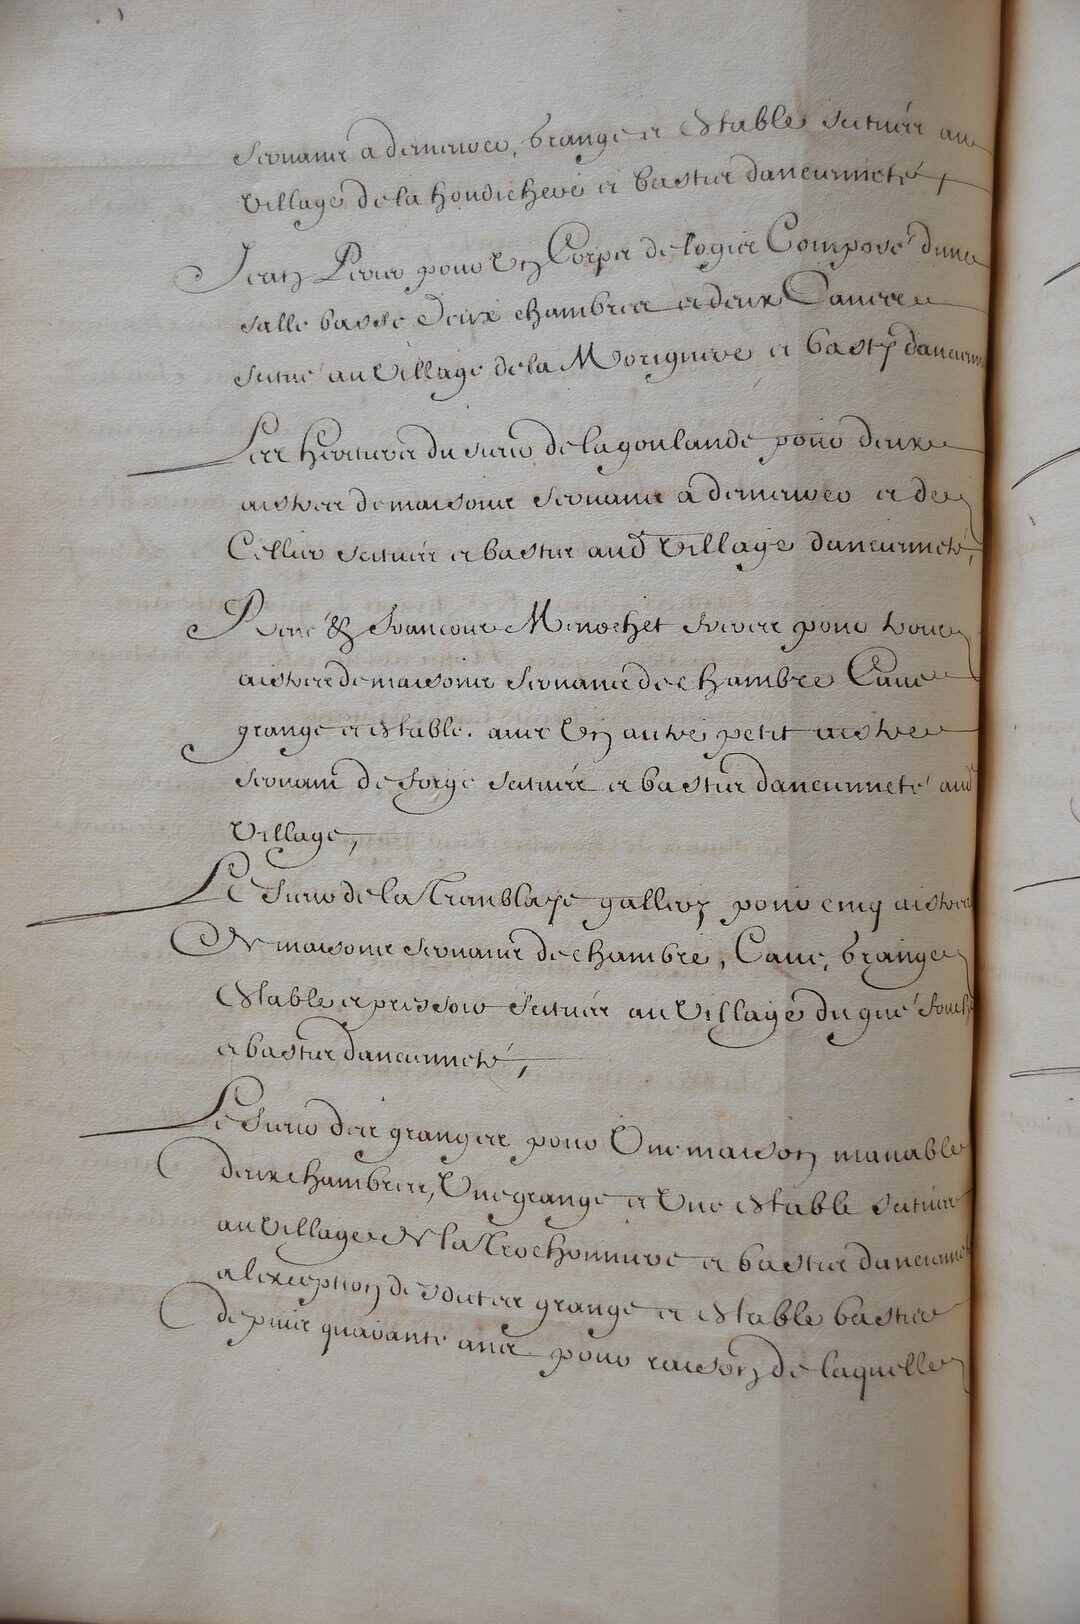 servants a demeurer, grange et estable scituez au
village de la houdichere et bastis danciennete,
Jean Perier pour un Corps de logis Composé dune
salle basse deux chambres et deux Caves
scitué au village de la Morigniere et basty danciennete
Les heritiers du sieur de lagoulande pour deux
aistres de maisons servants a demeurer et de
Cellier scituez et bastis aud village danciennete,
René & francois Menochet freres pour trois
aistres de maisons servants de chambre Cave
grange et estable. avec un autre petit aistre
servant de forge scituez et bastis danciennete aud
village,
Le sieur de la Tremblaye gallery pour cinq aistres
de maisons servants de chambre, Cave, grange
estable et pressoir scituez au village du gué
et bastis danciennete,
Le sieur des granges pour une maison manable
deux chambres, une grange et une estable scituez
au village de la Trochonniere et bastis danciennete
a lexception desdites grange et estable basties
depuis quarante ans pour raison de laquelle